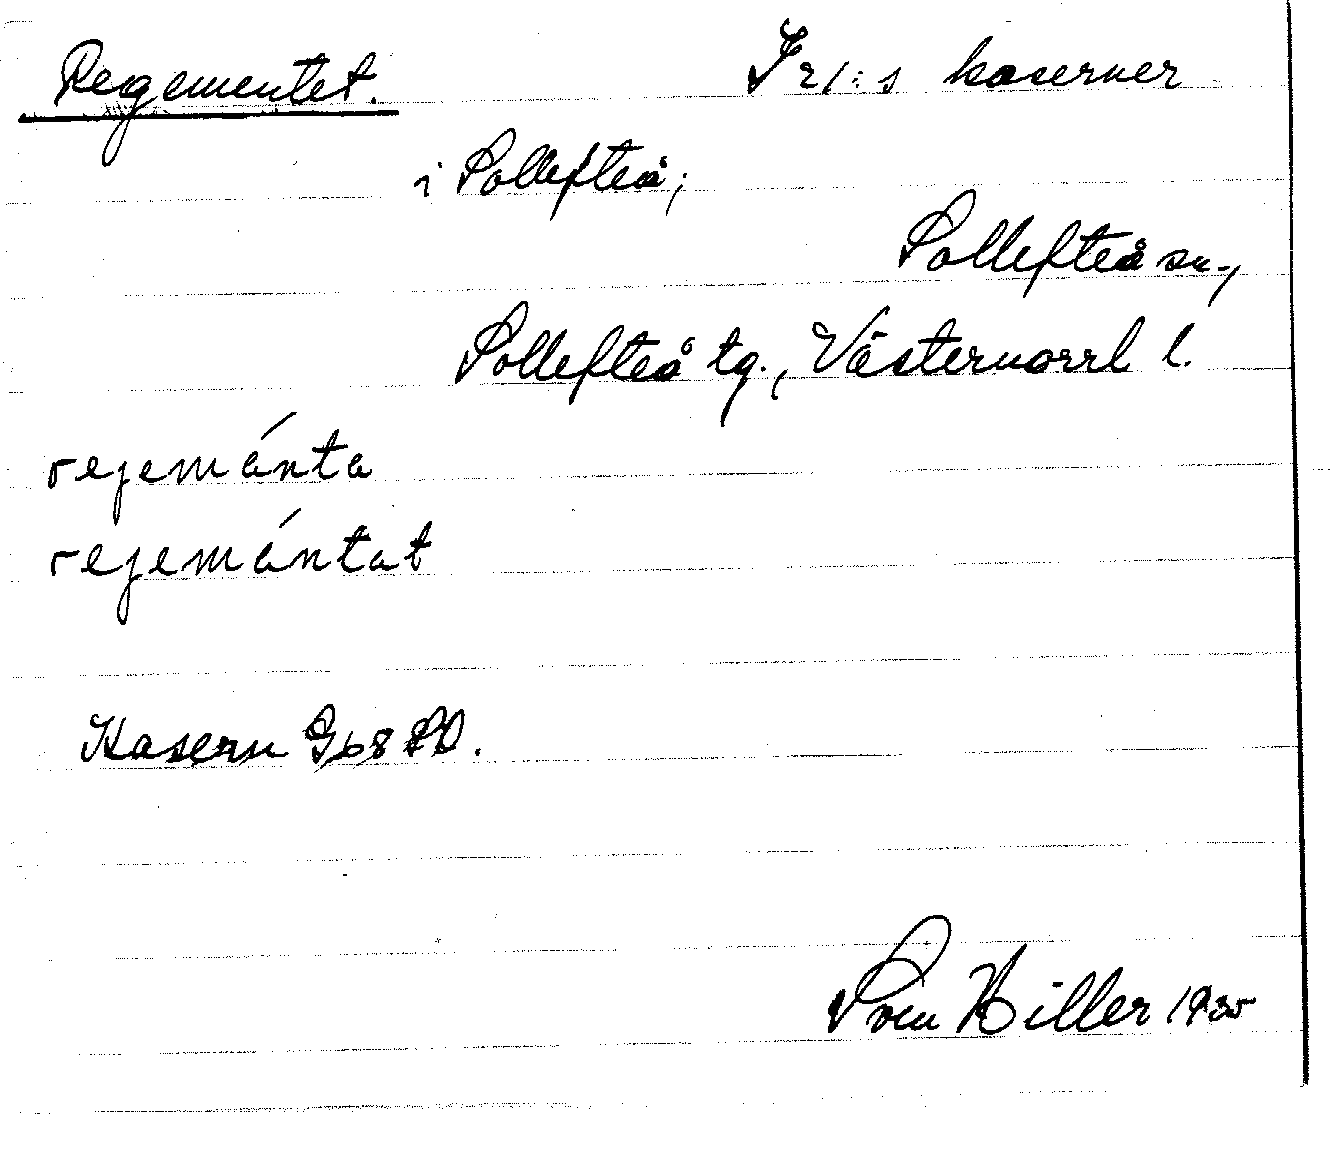 Regementet. I 21:s kaserner
i Sollefteå;
Sollefteå sn.,
Sollefteå tg., Västernorrl l.
rejemánta
rejemántat
Kasern G68 SO.
Sven Hiller 1935